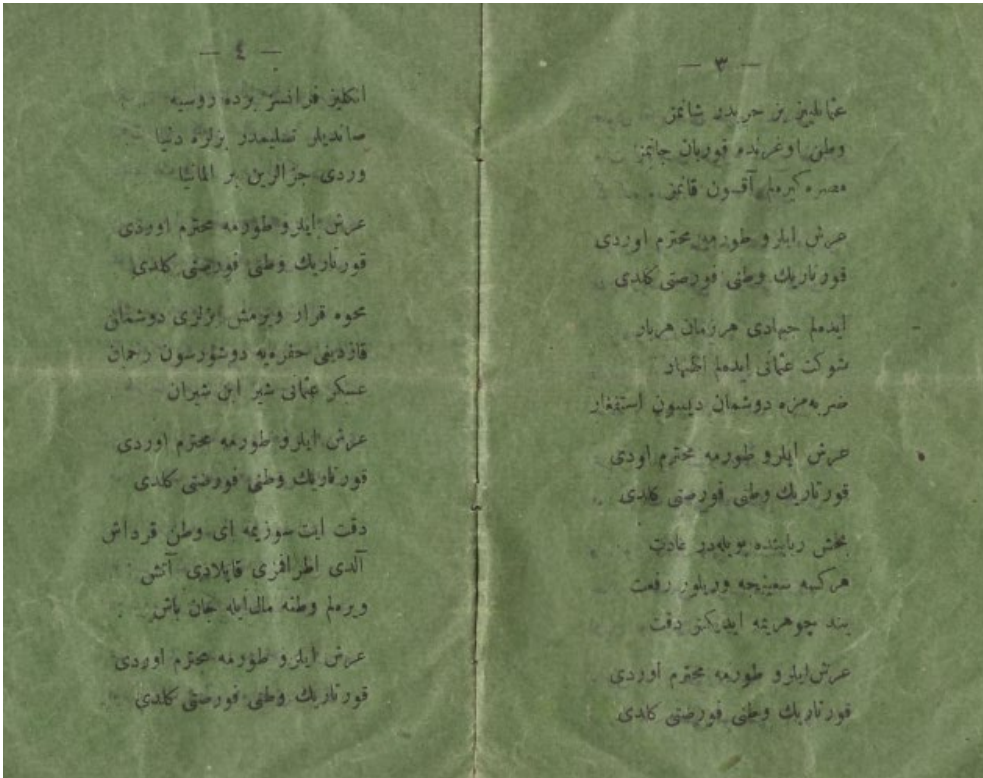 — ٣ —
عثمانلییز بز حریدر شانمز
وطن اوغرنده قوربان جانمز
مصره کیره‌لم آقسون قانمز
عرش ایلرو طورمه محترم اوردی
قورتاریك وطنی فورصتی كلدی
ایده‌لم جهادی هر زمان هربار
شوكت عثمانی ایده‌لم اظهار
ضربه‌مزه دوشمان دیسون استغفار
عرش ایلرو طورمه محترم اودی
قورتاریك وطنی فورصتی كلدی
بخش ربانیده بویله‌در عادت
هركسه سعینجه ویریلور رفعت
بند جوهریمه ایدیكز دقت
عرش ایلرو طورمه محترم اوردی
قورتاریك وطنی فورصتی كلدی
— ٤ —
انكلیز فرانسز برده روسیه
صاندیلر تسلیمدر بزلره دنیا
وردی جزالرین بر المانیا
عرش ایلرو طورمه محترم اوردی
قورتاریك وطنی فورصتی كلدی
محوه قرار ویرمش بزلری دوشمانی
قازدیغی حفره‌یه دوشورسون رحمان
عسكر عثمانی شیر ابن شیران
عرش ایلرو طورمه محترم اوردی
قورتاریك وطنی فورصتی كلدی
دقت ایت سوزیمه ای وطن قرداش
آلدی اطرافمزی قاپلادی آتش
ویره‌لم وطنه مال ایله جان باش
عرش ایلرو طورمه محترم اوردی
قورتاریك وطنی فورصتی كلدی